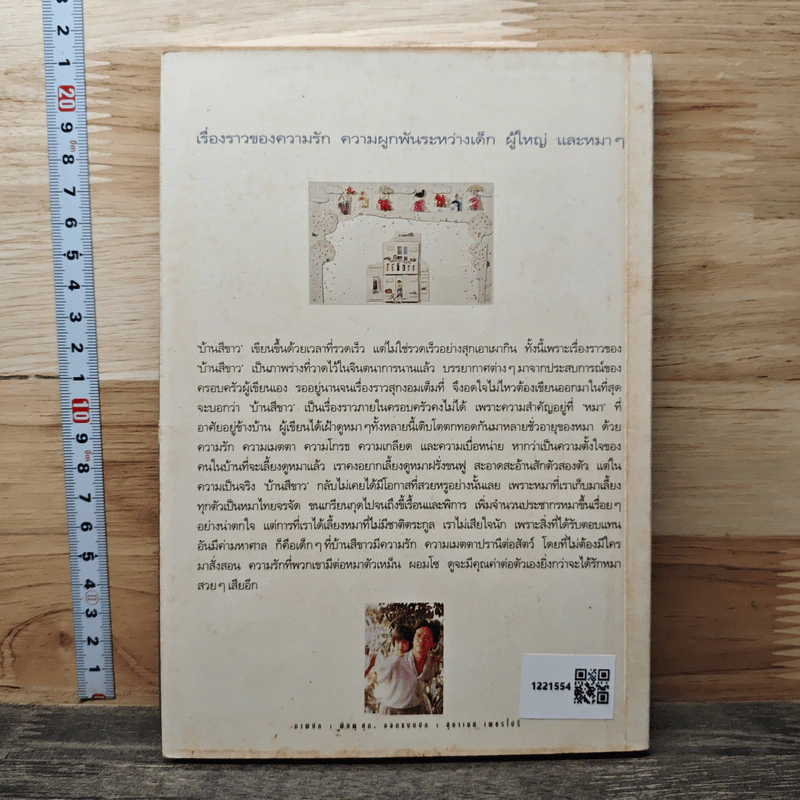 เรื่องราวของความรัก ความผูกพันระหว่างเด็ก ผู้ใหญ่ และหมา ๆ
'บ้านสีขาว' เขียนขึ้นด้วยเวลาที่รวดเร็ว แต่ไม่ใช่รวดเร็วอย่างสุกเอาเผากิน ทั้งนี้เพราะเรื่องราวของ
'บ้านสีขาว' เป็นภาพร่างที่วาดไว้ในจินตนาการนานแล้ว บรรยากาศต่าง ๆ มาจากประสบการณ์ของ
ครอบครัวผู้เขียนเอง รออยู่นานจนเรื่องราวสุกงอมเต็มที่ จึงอดใจไม่ไหวต้องเขียนออกมาในที่สุด
จะบอกว่า 'บ้านสีขาว' เป็นเรื่องราวภายในครอบครัวคงไม่ได้ เพราะความสำคัญอยู่ที่ 'หมา' ที่
อาศัยอยู่ข้างบ้าน ผู้เขียนได้เฝ้าดูหมา ๆ ทั้งหลายนี้เติบโตตกทอดกันมาหลายชั่วอายุของหมา ด้วย
ความรัก ความเมตตา ความโกรธ ความเกลียด และความเบื่อหน่าย หากว่าเป็นความตั้งใจของ
คนในบ้านที่จะเลี้ยงดูหมาแล้ว เราคงอยากเลี้ยงดูหมาฝรั่งขนฟู สะอาดสะอ้านสักตัวสองตัว แต่ใน
ความเป็นจริง 'บ้านสีขาว' กลับไม่เคยได้มีโอกาสที่สวยหรูอย่างนั้นเลย เพราะหมาที่เราเก็บมาเลี้ยง
ทุกตัวเป็นหมาไทยจรจัด ขนเกรียนกุดไปจนถึงขี้เรื้อนและพิการ เพิ่มจำนวนประชากรหมาขึ้นเรื่อย ๆ
อย่างน่าตกใจ แต่การที่เราได้เลี้ยงหมาที่ไม่มีชาติตระกูล เราไม่เสียใจนัก เพราะสิ่งที่ได้รับตอบแทน
อันมีค่ามหาศาล ก็คือเด็ก ๆ ที่บ้านสีขาวมีความรัก ความเมตตาปรานีต่อสัตว์ โดยที่ไม่ต้องมีใคร
มาสั่งสอน ความรักที่พวกเขามีต่อหมาตัวเหม็น ผอมโซ ดูจะมีคุณค่าต่อตัวเองยิ่งกว่าจะได้รักหมา
สวย ๆ เสียอีก
1221554
ภาพปก :
ออกแบบปก :
3 2 1 20 9 8 7 6 5 4 3 2 1 10 9 8 7 6 5 4 3 2 1